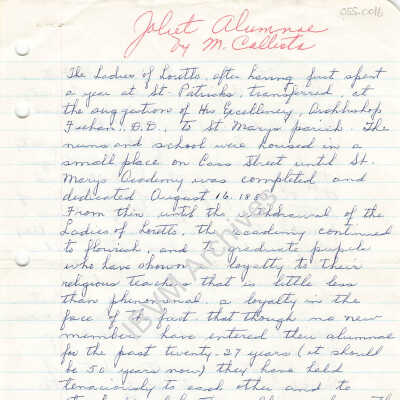 OSS.0016
Joliet Alumnae
by M. Callista
The Ladies of Loretto, after having first spent
a year at St. Patricks, transferred, at
the suggestion of His Excellency, Archbishop
Feehan, D.D., to St. Marys parish. The
nuns and school were housed in a
small place on Cass Street until St.
Marys Academy was completed and
dedicated August 16.
From then until the withdrawal of the
Ladies of Loretto, the academy continued
to flourish, and to graduate pupils
who have shown a loyalty to their
religious teachers that is little less
than phenomenal, a loyalty in the
face of the fact that though no new
members have entered their alumnae
for the past twenty-27 years (it should
be 50 years now) they have held
tenaciously to each other and to
IBVM Archives